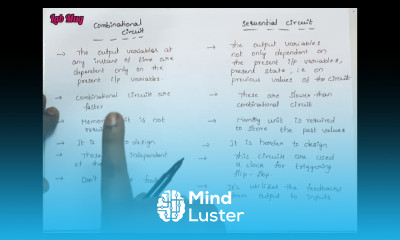 Lab Mug
Combinational
Circuit
Sequential Circuit
→ The output variables at
any instant of time are
dependent only on the
present i/p variables
→ Combinational circuit are
faster
→ Memo it is not
requi
→ It is design
→ These independent
→ Don't
→ The output variables
not only dependent on
the present i/p variables,
present state, i.e on
previous values of the circuit
→ These are slower than
combinational circuit
→ Memory unit is required
to store the past values
→ It is harder to design
→ This circuit are used
a clock for triggering
flip-flop.
→ It's utilizes the feedbacks
from output to inputs
Mind
Luster